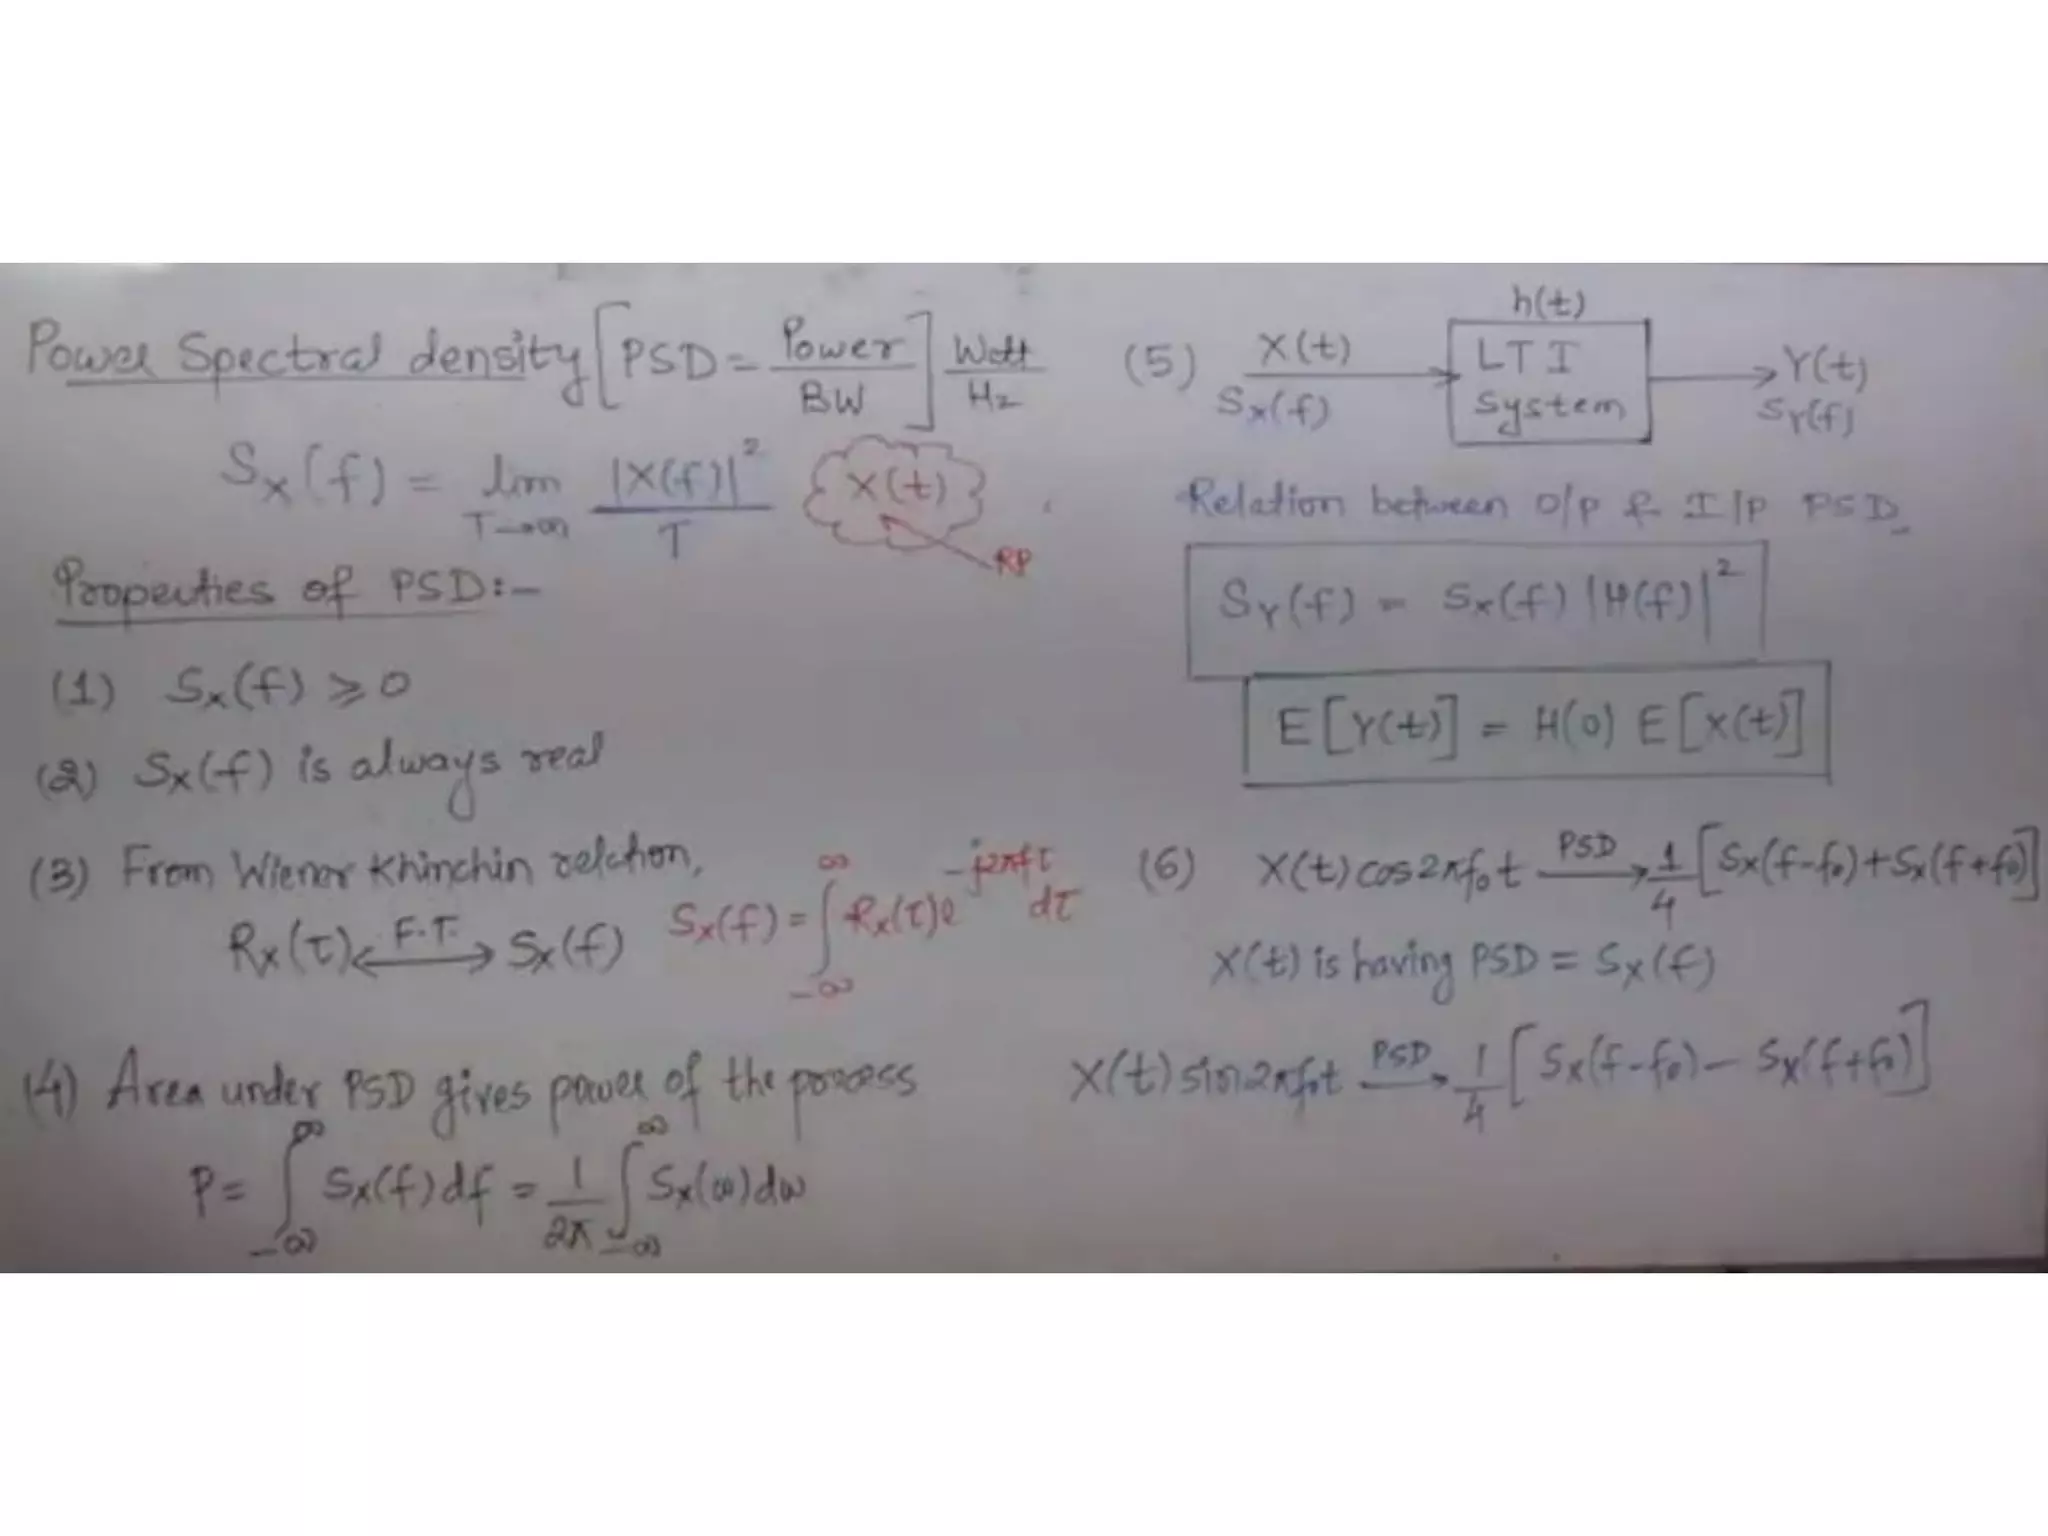 Power Spectral density [PSD = Power/BW] Watt/Hz
Sx(f) = lim T→∞ |X(f)|²/T X(t)
RP
Properties of PSD:-
(1) Sx(f) ≥ 0
(2) Sx(f) is always real
(3) From Wiener Khinchin relation,
Rx(τ) ←F.T.→ Sx(f) Sx(f) = ∫_{-∞}^{∞} Rx(τ) e^{-j2πfτ} dτ
(4) Area under PSD gives power of the process
P = ∫_{-∞}^{∞} Sx(f) df = 1/2π ∫_{-∞}^{∞} Sx(ω) dω
h(t)
(5) X(t) LTI Y(t)
Sx(f) System SY(f)
Relation between O/P & I/P PSD
SY(f) = Sx(f) |H(f)|²
E[Y(t)] = H(0) E[X(t)]
(6) X(t) cos2πf₀t PSD→ 1/4 [Sx(f-f₀)+Sx(f+f₀)]
X(t) is having PSD = Sx(f)
X(t) sin2πf₀t PSD→ 1/4 [Sx(f-f₀) - Sx(f+f₀)]